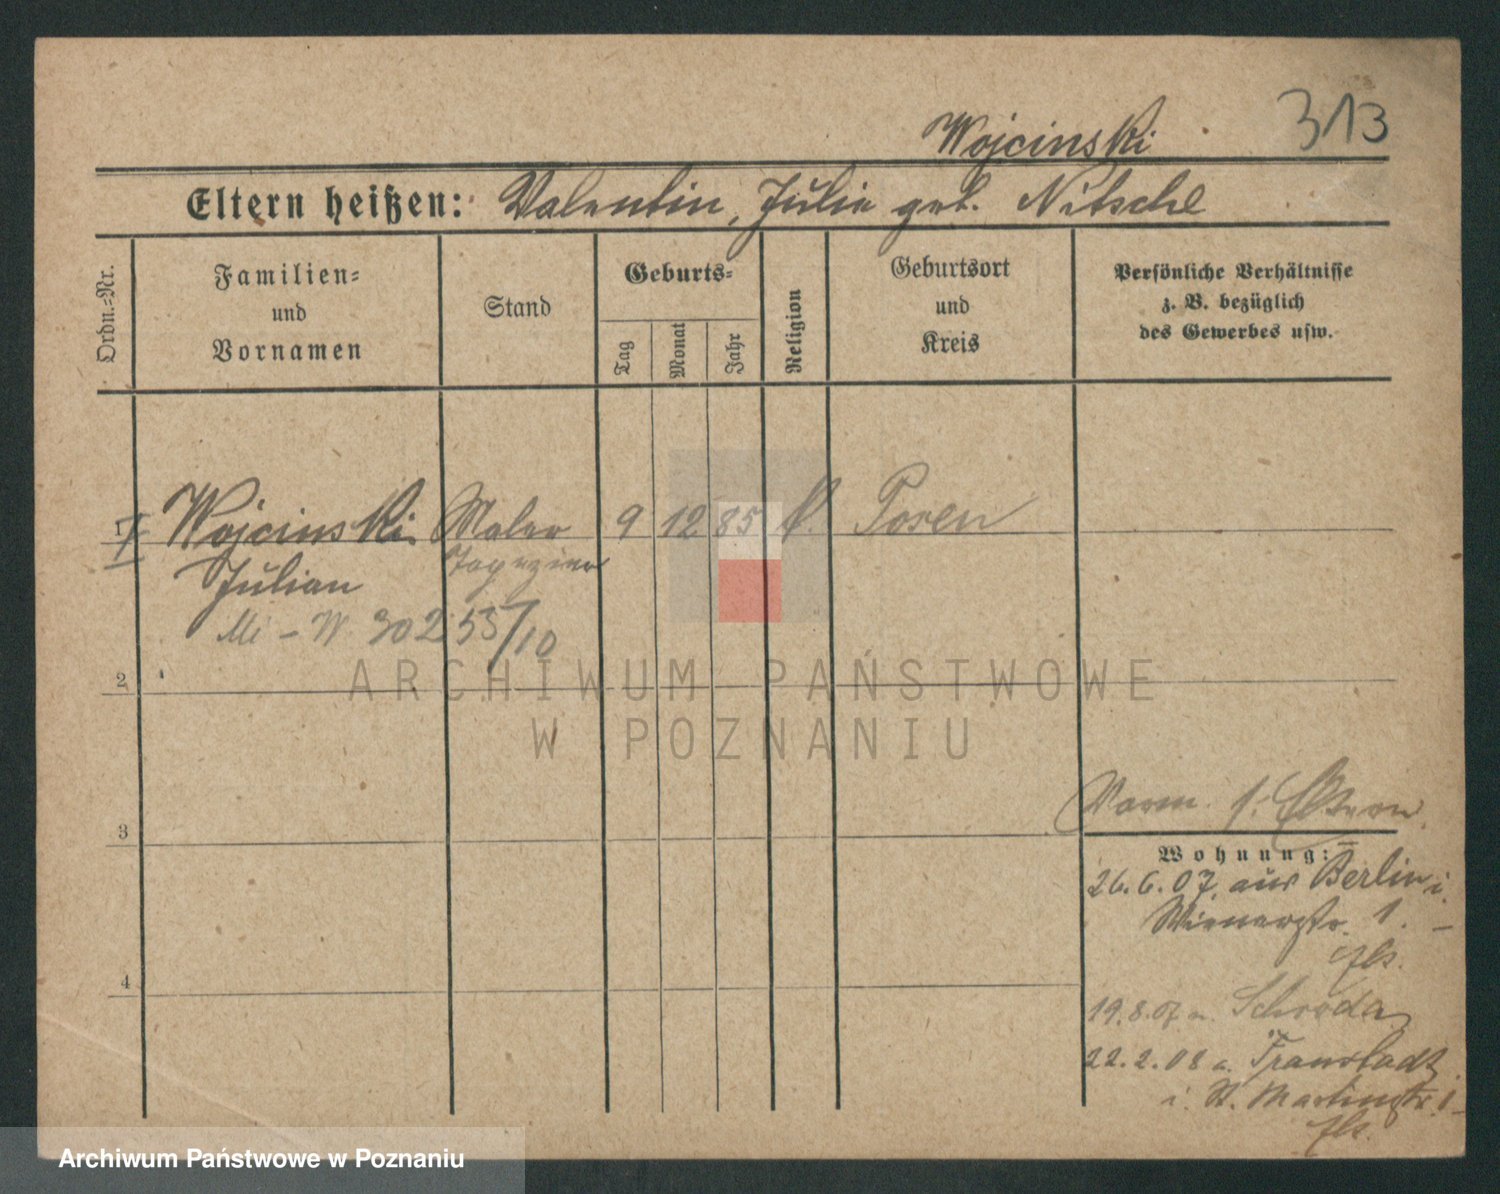 313
Wojcinski
Eltern heißen: Valentin, Julie geb. Nitsche
Ordn.=Nr.
Familien=
und
Vornamen
Stand
Geburts=
Tag
Monat
Jahr
Religion
Geburtsort
und
Kreis
Persönliche Verhältnisse
z. B. bezüglich
des Gewerbes usw.
1 Wojcinski Maler 9 12 85 k. Posen
Julian Tapezier
Mi - W. 30253/10
2
3
4
Vorm. s. Eltern
Wohnung:
26.6.07. aus Berlin i.
Wienerstr. 1.
19.8.07 n. Schroda
22.2.08 a. Fraustadt
i. St. Martinstr. 1
ARCHIWUM PAŃSTWOWE
W POZNANIU
Archiwum Państwowe w Poznaniu